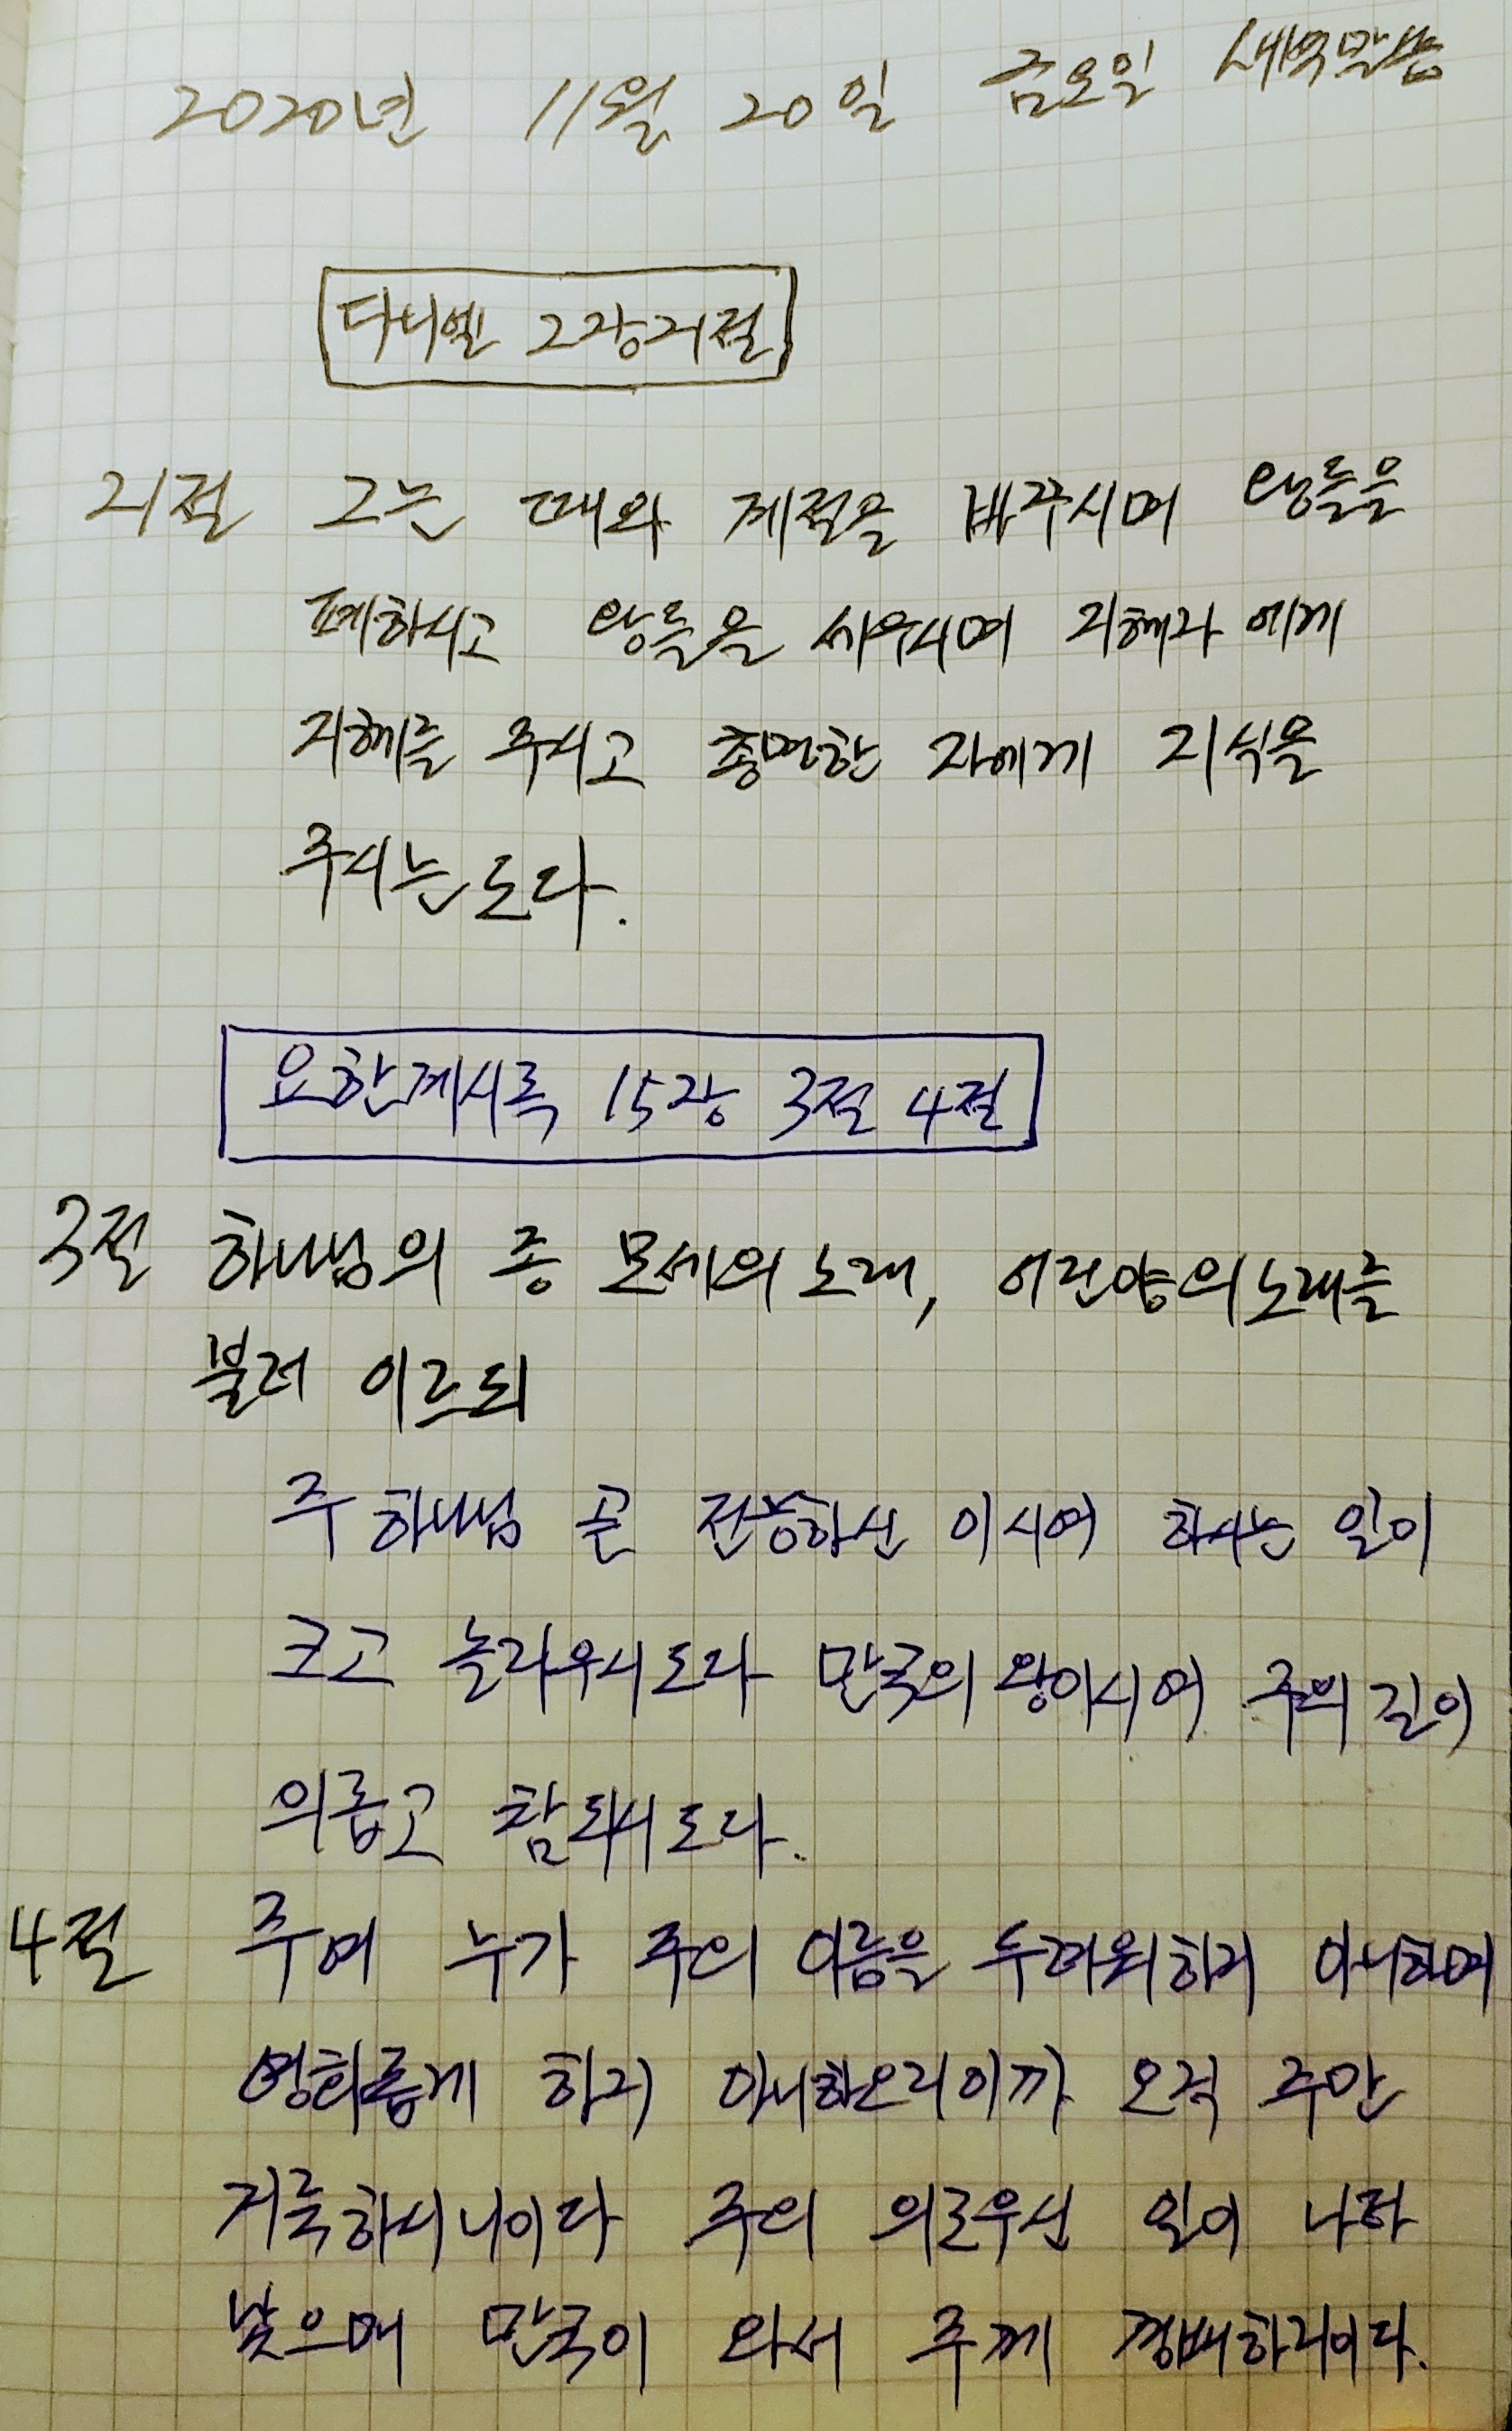 2020년 11월 20일 금요일 새벽말씀
다니엘 2장21절
21절 그는 때와 계절을 바꾸시며 왕들을
폐하시고 왕들을 세우시며 지혜자에게
지혜를 주시고 총명한 자에게 지식을
주시는도다.
요한계시록 15장 3절 4절
3절 하나님의 종 모세의 노래, 어린양의 노래를
불러 이르되
주 하나님 곧 전능하신 이시여 하시는 일이
크고 놀라우시도다 만국의 왕이시여 주의 길이
의롭고 참되시도다.
4절 주여 누가 주의 이름을 두려워하지 아니하며
영화롭게 하지 아니하오리이까 오직 주만
거룩하시니이다 주의 의로우신 일이 나타
났으매 만국이 와서 주께 경배하리이다.